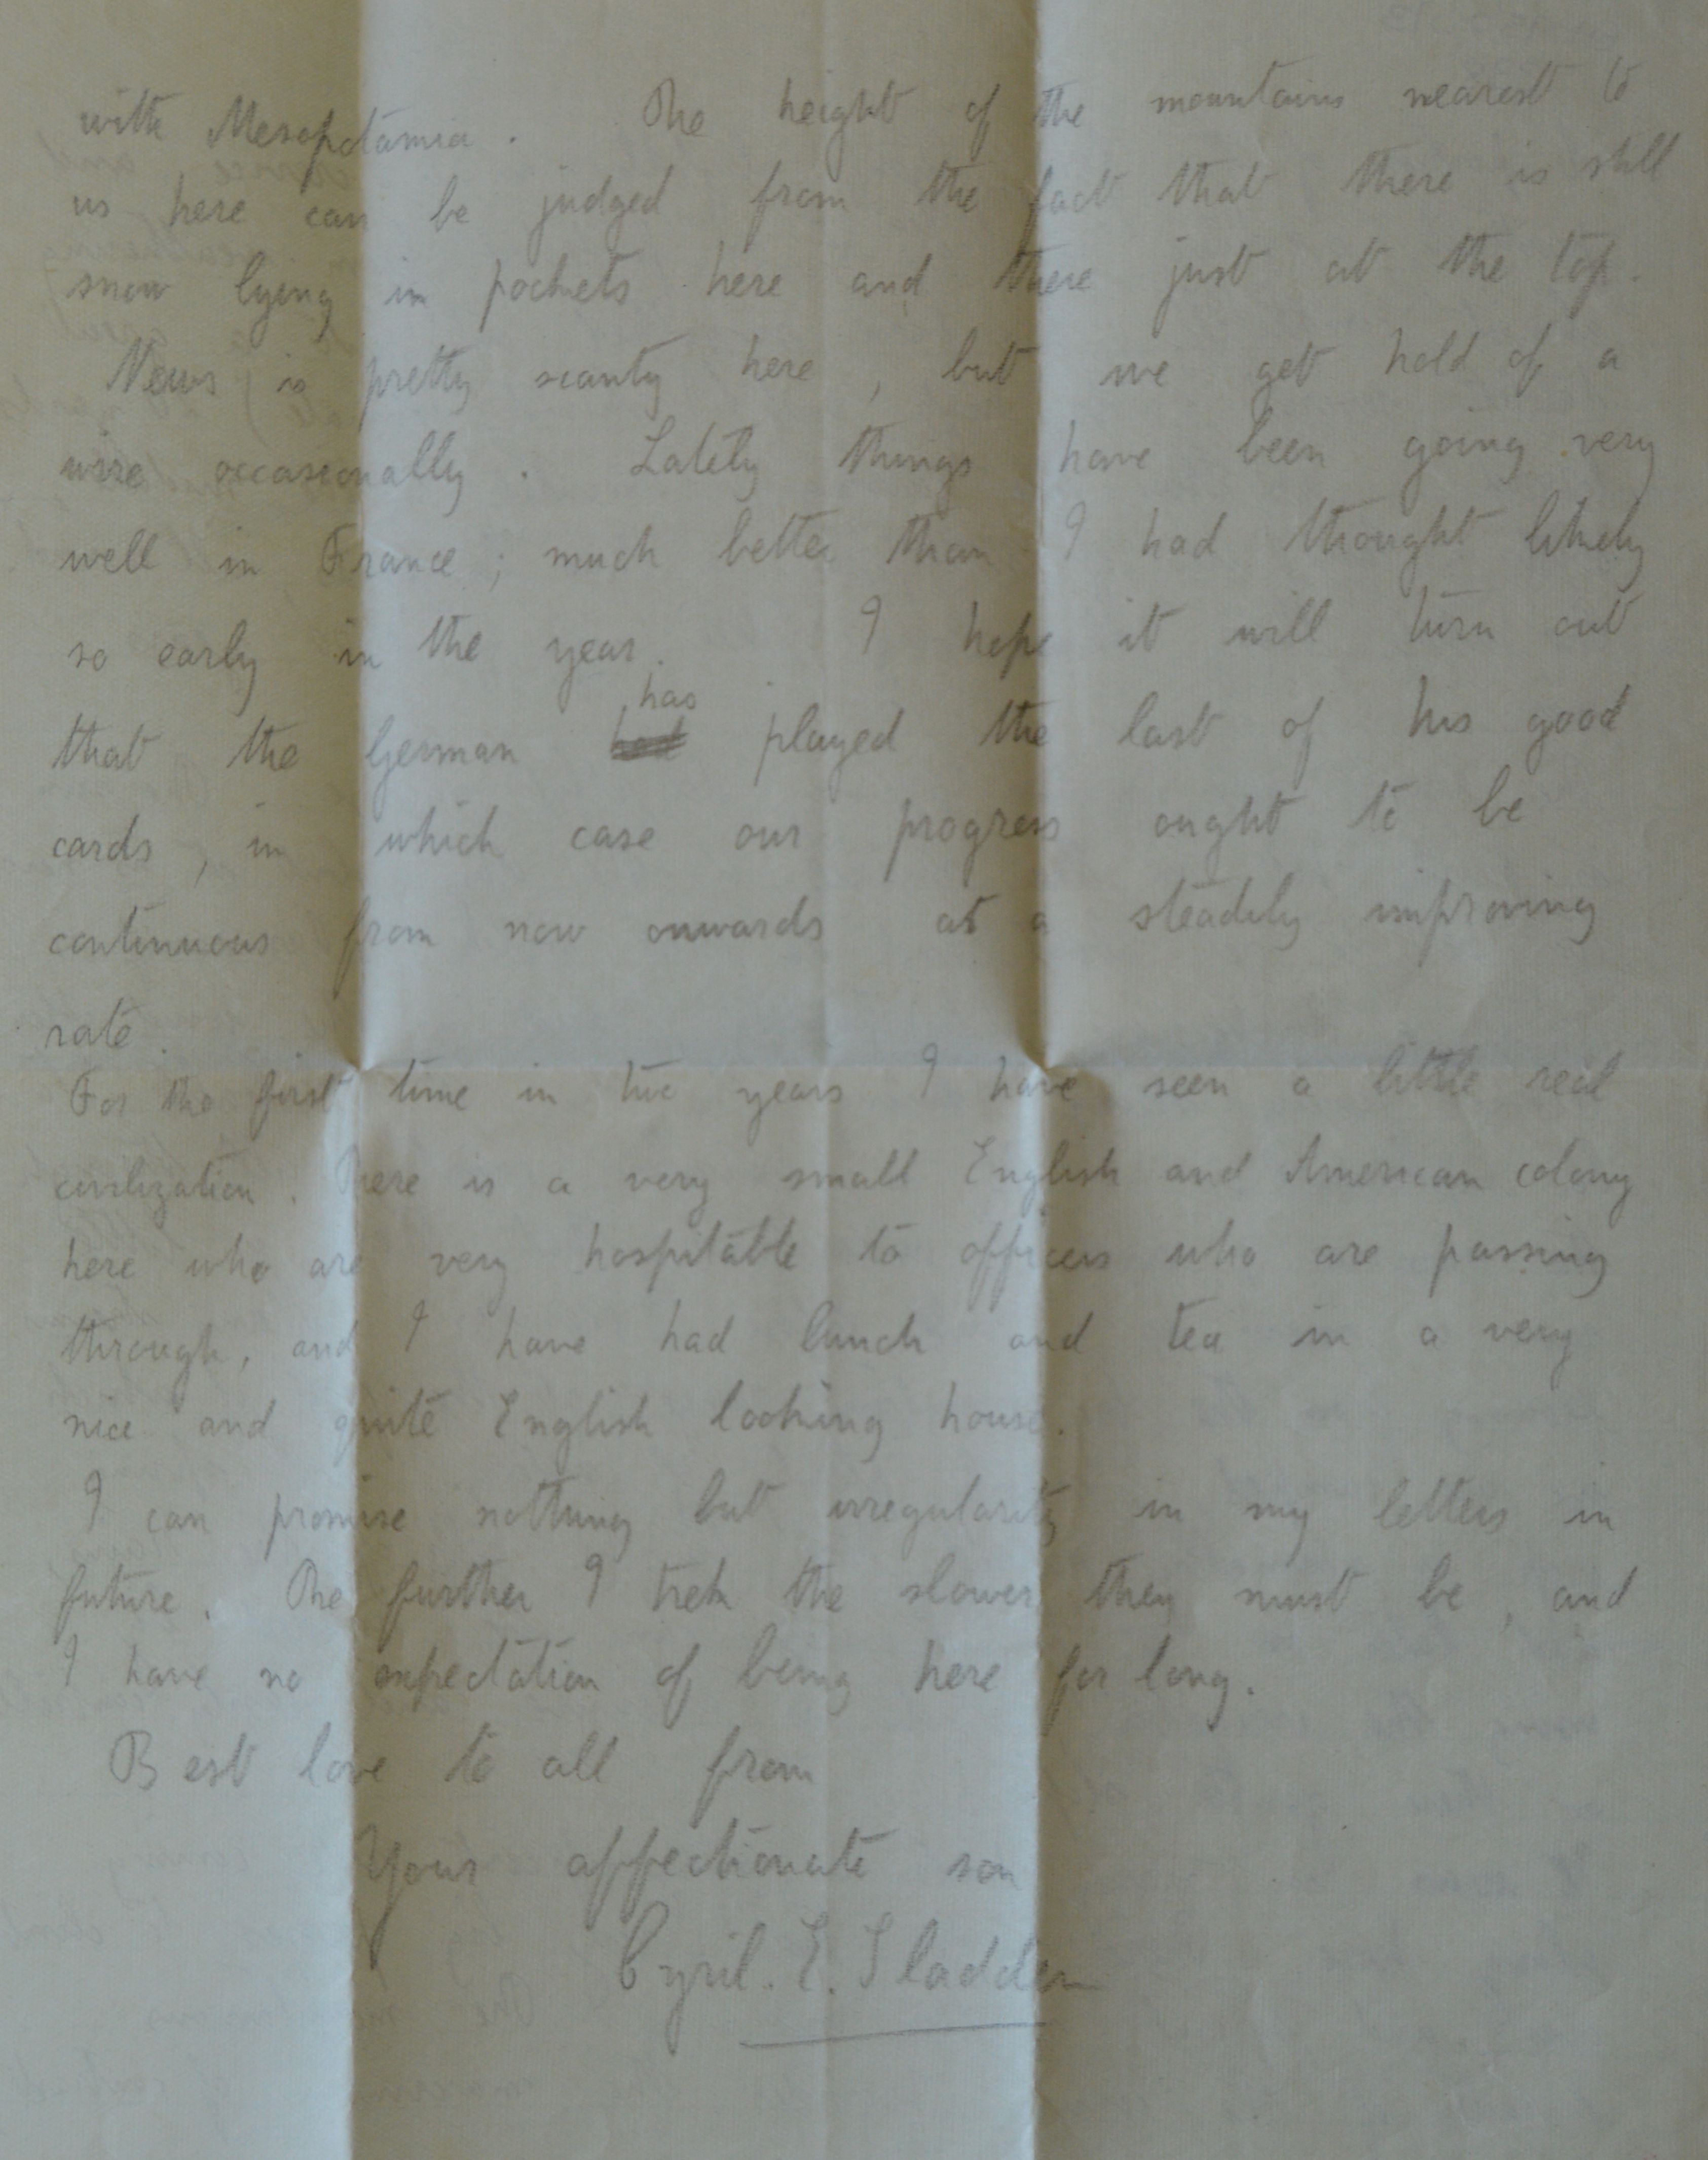 with Mesopotamia. The height of the mountains nearest to
us here can be judged from the fact that there is still
snow lying in pockets here and there just at the top.
News is pretty scanty here, but we get hold of a
wire occasionally. Lately things have been going very
well in France; much better than I had thought likely
so early in the year. I hope it will turn out
has
that the German had played the last of his good
cards, in which case our progress ought to be
continuous from now onwards at a steadily improving
rate.
For the first time in two years I have seen a little real
civilization. There is a very small English and American colony
here who are very hospitable to officers who are passing
through, and I have had lunch and tea in a very
nice and quite English looking house.
I can promise nothing but irregularity in my letters in
future. The further I trek the slower they must be, and
I have no expectation of being here for long.
Best love to all from
Your affectionate son
Cyril. E. Sladden